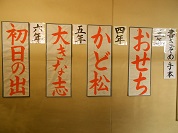 書きぞめ手本
おせち
四年
かど松
五年
大きな志
六年
初日の出